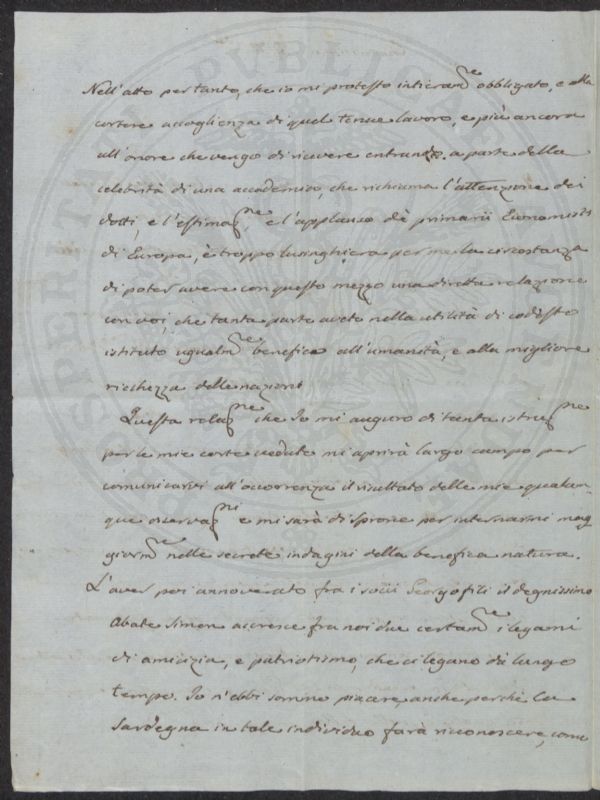 Nell'atto per tanto, che io mi protesto intieram.e obbligato, e alla
cortese accoglienza di quel tenue lavoro, e più ancora
all'onore che vengo di ricevere entrando a parte della
celebrità di una accademia, che richiama l'attenzione dei
dotti, e l'estimaz.ne, e l'applauso de primarii Economisti
di Europa, è troppo lusinghiera per me la circostanza
di poter avere con questo mezzo una diretta relazione
con voi, che tanta parte avete nella utilità di codesto
istituto ugualm.e benefico all'umanità, e alla migliore
ricchezza delle nazioni
Questa relaz.ne che Io mi auguro di tanta istruz.ne
per le mie corte vedute mi aprirà largo campo per
comunicarvi all'occorrenza il risultato delle mie qualun-
que osservaz.ni e mi sarà di sprone per internarmi mag-
giorm.e nelle secrete indagini della benefica natura.
L'aver poi annoverato fra i socii Georgofili il degnissimo
Abate Simon accresce fra noi due certam.e i legami
di amicizia, e patriotismo, che ci legano da lungo
tempo. Io n'ebbi sommo piacere anche perché la
Sardegna in tale individuo farà riconoscere, come
PROSPERITATI PUBLICAE AUGENDAE